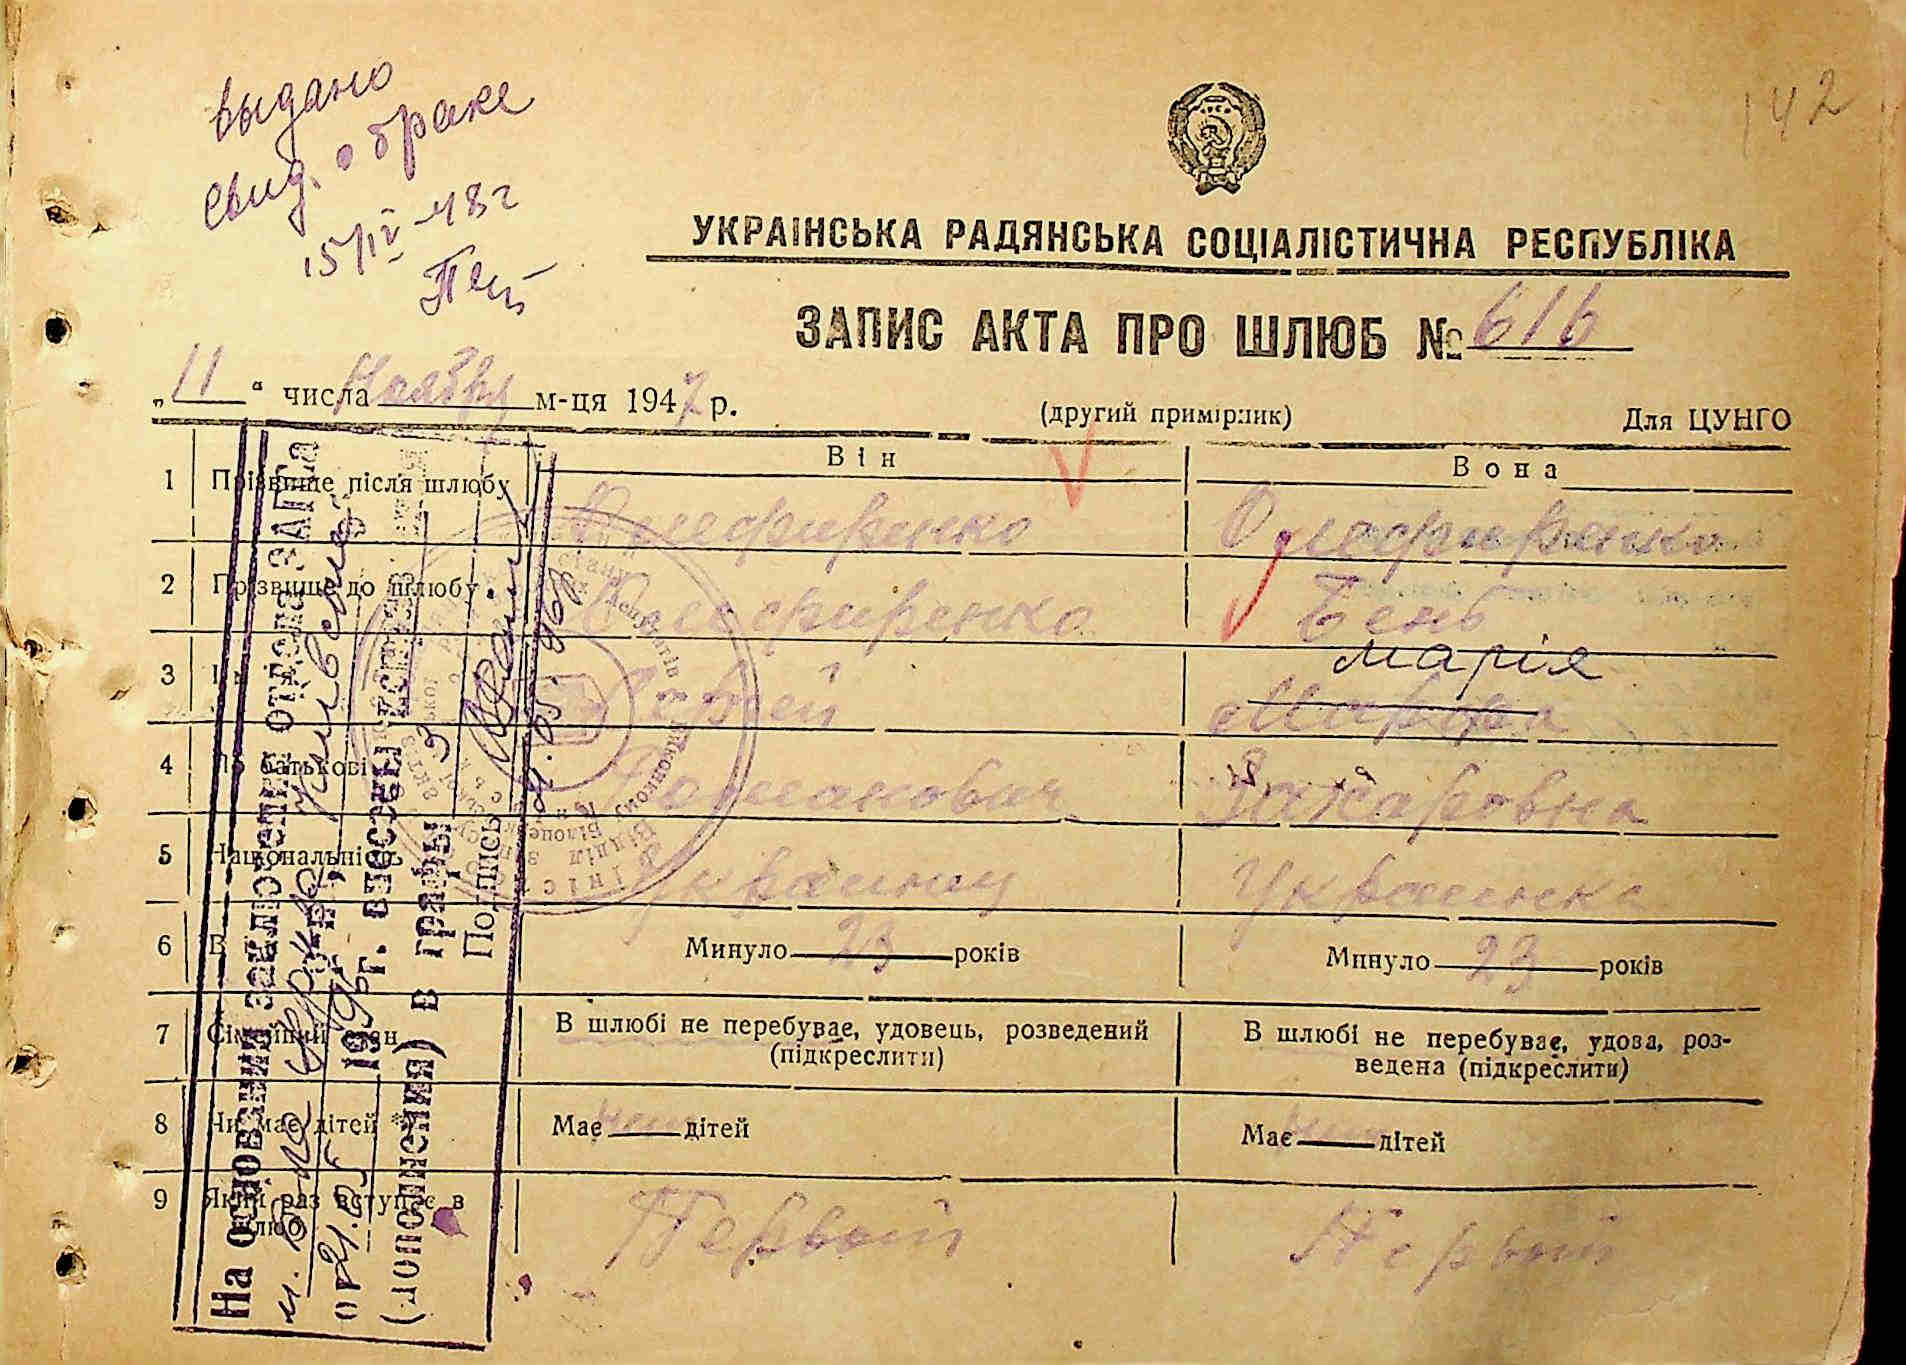 142
выдано
свид. о браке
15/IV-48г
УКРАЇНСЬКА РАДЯНСЬКА СОЦІАЛІСТИЧНА РЕСПУБЛІКА
ЗАПИС АКТА ПРО ШЛЮБ № 616
„11“ числа Ноября м-ця 1947 р.
(другий примірник) Для ЦУНГО
Він Вона
1 Прізвище після шлюбу Олефиренко Олефиренко
2 Прізвище до шлюбу Олефиренко Бень
марія
3 Сергей Марфа
4 По батькові Романович Захаровна
5 Національність Украинец Украинка
6 В Минуло 23 років Минуло 23 років
7 Сімейний стан В шлюбі не перебуває, удовець, розведений (підкреслити) В шлюбі не перебуває, удова, роз-
ведена (підкреслити)
8 Чи має дітей Має нет дітей Має нет дітей
9 Який раз вступає в шлюб Первый Первый
На основании заключения отдела ЗАГСа
м. Біла Церква
от 24.05 196 г. внесены исправления
(дополнения) в графы 3
Подпись